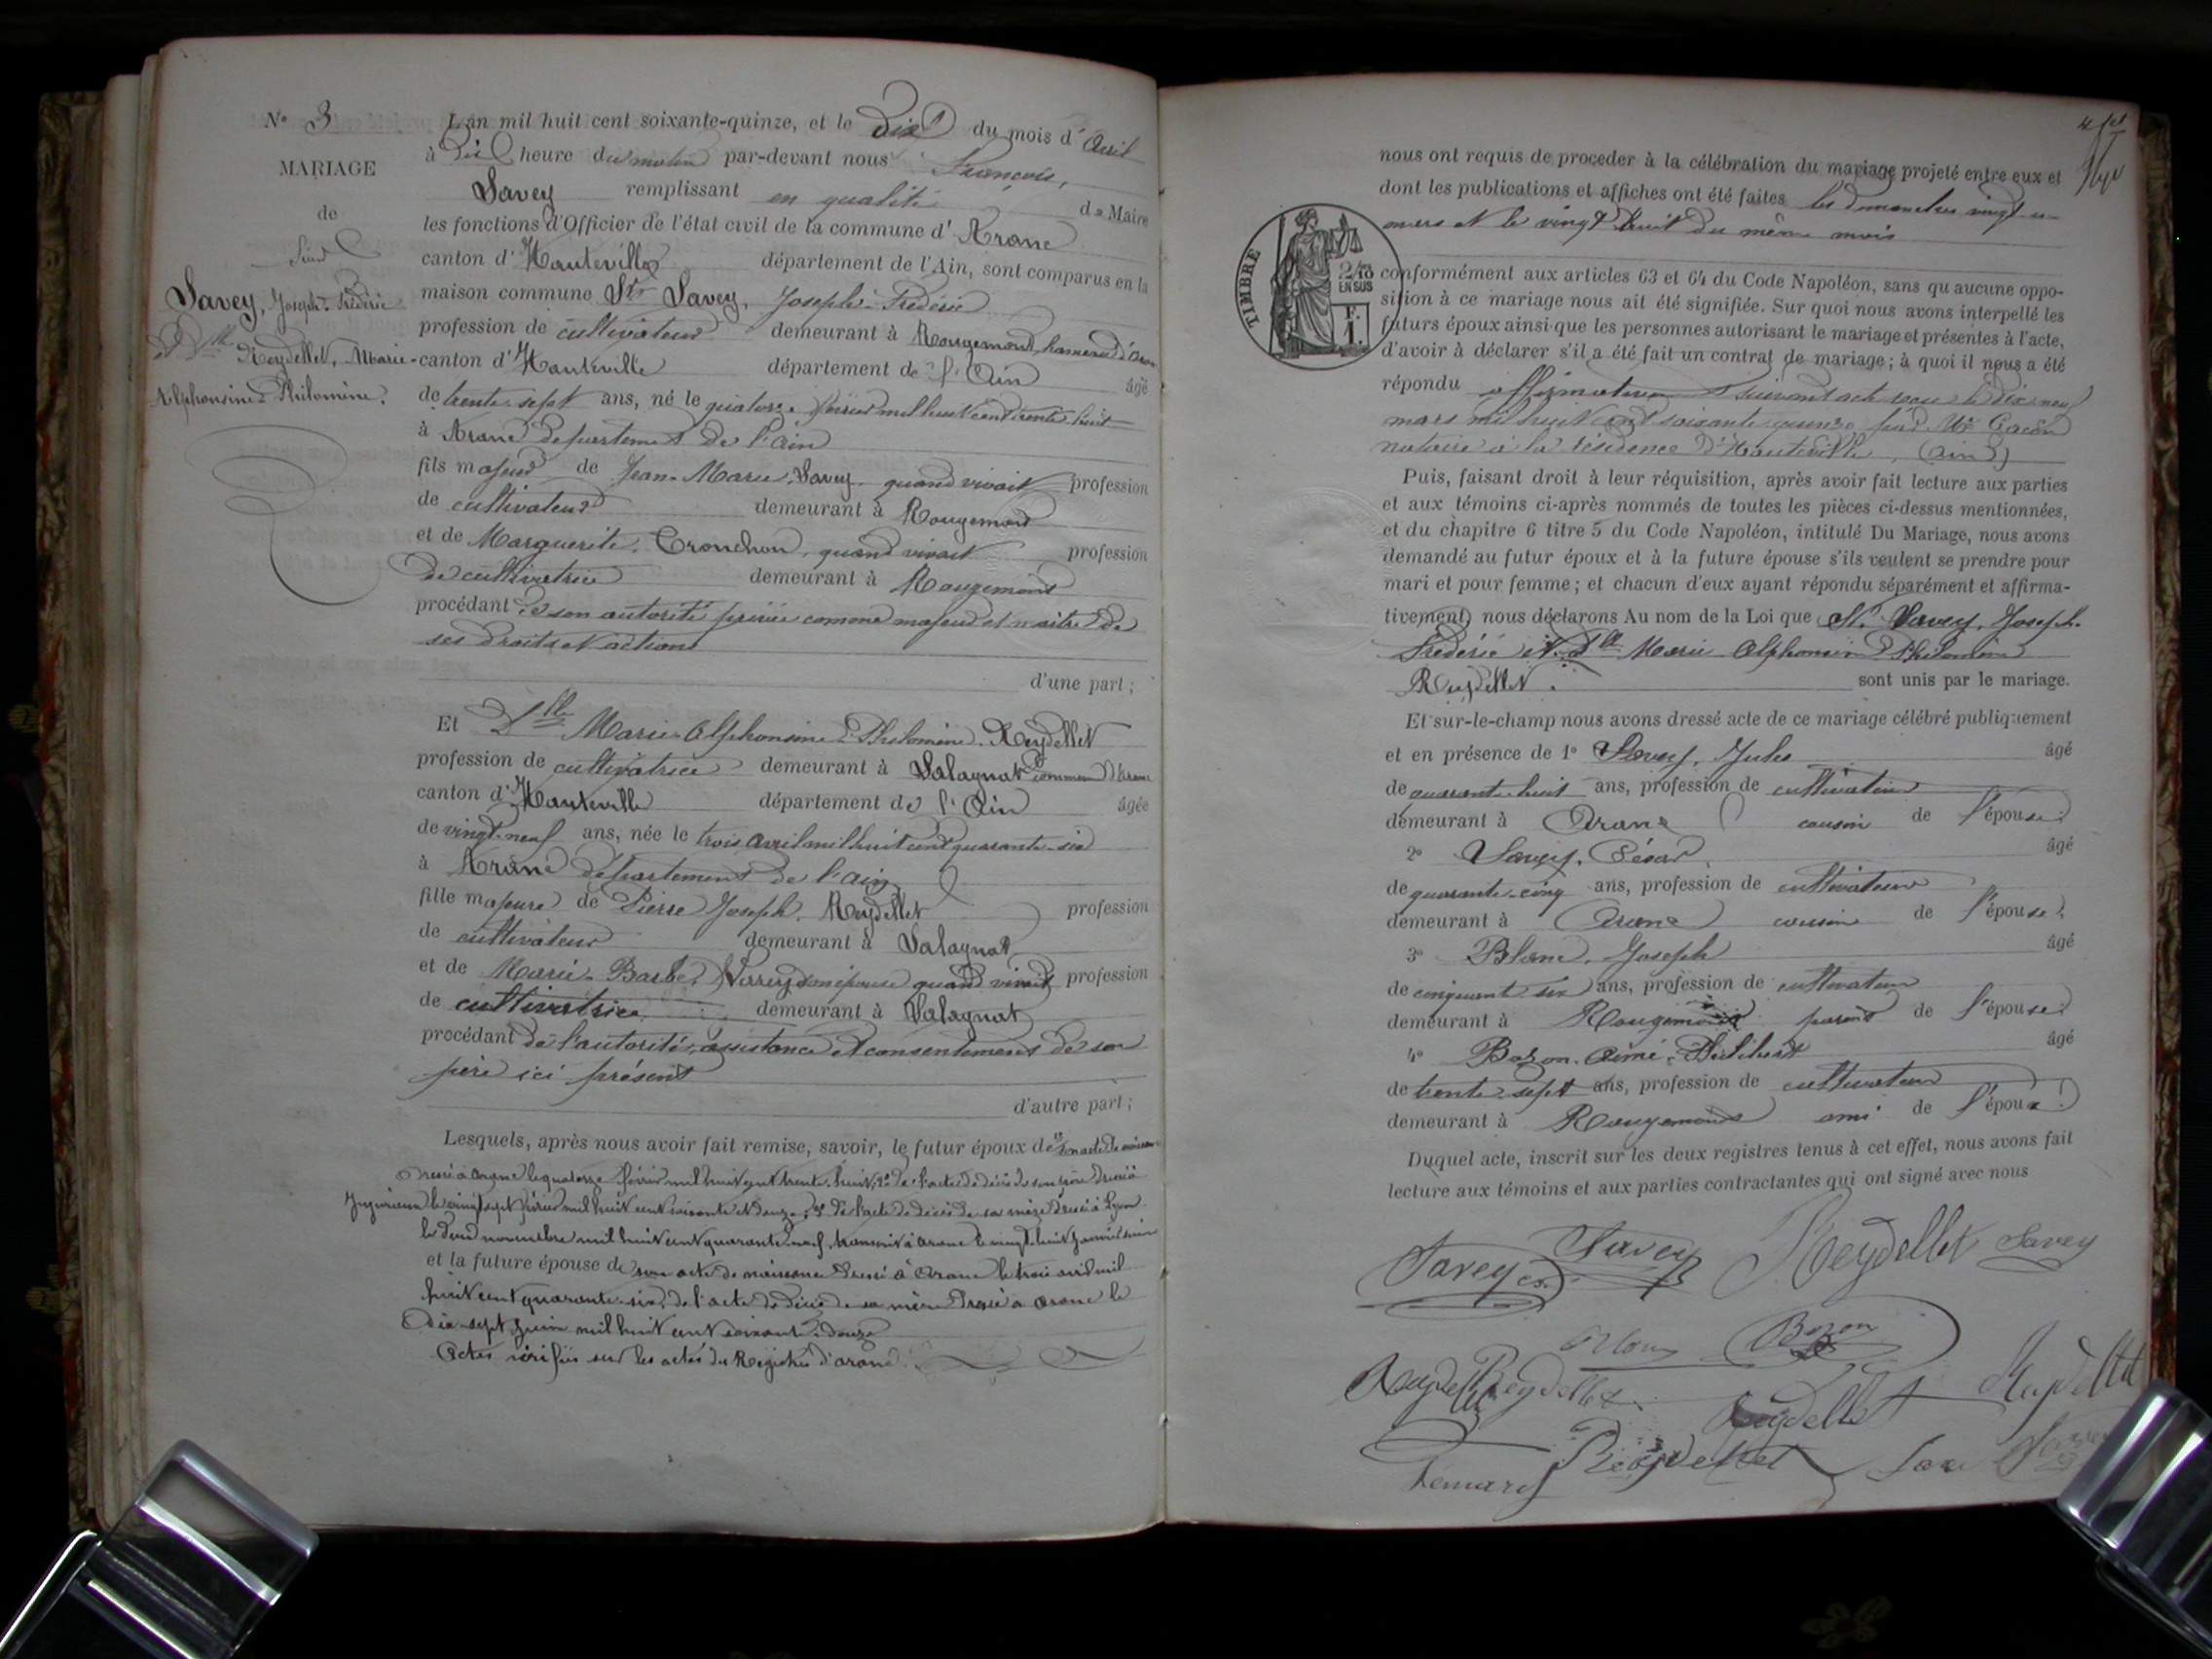 N° 3
MARIAGE
de
Savey, Joseph-Frédéric
et Dlle Reydellet, Marie-
Alphonsine Philomène.
L'an mil huit cent soixante-quinze, et le Dix du mois d'Avril
à Dix heure du matin par-devant nous François,
Savey remplissant en qualité de Maire
les fonctions d'Officier de l'état civil de la commune d'Aranc
canton d'Hauteville département de l'Ain, sont comparus en la
maison commune Sr Savey, Joseph-Frédéric
profession de cultivateur demeurant à Rougemont, hameau d'Aranc
canton d'Hauteville département de l'Ain âgé
de trente-sept ans, né le quatorze février mil huit cent trente-huit
à Aranc département de l'ain
fils majeur de Jean-Marie Savey quand vivait profession
de cultivateur demeurant à Rougemont
et de Marguerite Tronchon, quand vivait profession
de cultivatrice demeurant à Rougemont
procédant de son autorité privée comme majeur et maître de
ses droits et actions
d'une part;
Et Dlle Marie-Alphonsine Philomène Reydellet
profession de cultivatrice demeurant à Salagnat commune d'Aranc
canton d'Hauteville département de l'Ain âgée
de vingt-neuf ans, née le trois avril mil huit cent quarante-six
à Aranc département de l'ain
fille majeure de Pierre Joseph Reydellet profession
de cultivateur demeurant à Salagnat
et de Marie-Barbe Savey son épouse quand vivait profession
de cultivatrice demeurant à Salagnat
procédant de l'autorité, assistance et consentement de son
père ici présent
d'autre part;
Lesquels, après nous avoir fait remise, savoir, le futur époux de 1° son acte de naissance
dressé à Aranc le quatorze février mil huit cent trente-huit, 2° de l'acte de décès de son père dressé à
Jujurieux le vingt sept février mil huit cent soixante et douze, 3° de l'acte de décès de sa mère dressé à Lyon
le deux novembre mil huit cent quarante-neuf, transcrit à Aranc le vingt-huit janvier
et la future épouse de son acte de naissance dressé à Aranc le trois avril mil
huit cent quarante-six, de l'acte de décès de sa mère dressé à Aranc le
dix-sept juin mil huit cent soixante-douze
Actes vérifiés sur les actes des Registres d'Aranc.
nous ont requis de proceder à la célébration du mariage projeté entre eux et
dont les publications et affiches ont été faites les dimanches vingt-un
mars et le vingt huit du même mois
TIMBRE
2/10 EN SUS
F. 1.
conformément aux articles 63 et 64 du Code Napoléon, sans qu'aucune oppo-
sition à ce mariage nous ait été signifiée. Sur quoi nous avons interpellé les
futurs époux ainsi que les personnes autorisant le mariage et présentes à l'acte,
d'avoir à déclarer s'il a été fait un contrat de mariage; à quoi il nous a été
répondu affirmativement suivant acte reçu le dix neuf
mars mil huit cent soixante quinze par Me
notaire à la résidence d'Hauteville, (ain)
Puis, faisant droit à leur réquisition, après avoir fait lecture aux parties
et aux témoins ci-après nommés de toutes les pièces ci-dessus mentionnées,
et du chapitre 6 titre 5 du Code Napoléon, intitulé Du Mariage, nous avons
demandé au futur époux et à la future épouse s'ils veulent se prendre pour
mari et pour femme; et chacun d'eux ayant répondu séparément et affirma-
tivement, nous déclarons Au nom de la Loi que Sr Savey, Joseph-
Frédéric et Dlle Marie Alphonsine Philomène
Reydellet. sont unis par le mariage.
Et sur-le-champ nous avons dressé acte de ce mariage célébré publiquement
et en présence de 1° Savey, Jules âgé
de quarante-huit ans, profession de cultivateur
demeurant à Aranc cousin de l'épouse
2° Savey, César âgé
de quarante-cinq ans, profession de cultivateur
demeurant à Aranc cousin de l'épouse
3° Blanc, Joseph âgé
de cinquante six ans, profession de cultivateur
demeurant à Rougemont parent de l'épouse
4° Bozon, Aimé-Philibert âgé
de trente-sept ans, profession de cultivateur
demeurant à Rougemont ami de l'époux
Duquel acte, inscrit sur les deux registres tenus à cet effet, nous avons fait
lecture aux témoins et aux parties contractantes qui ont signé avec nous
Savey Savey Reydellet Savey
Blanc Bozon
Reydellet Reydellet Reydellet Reydellet
Reydellet